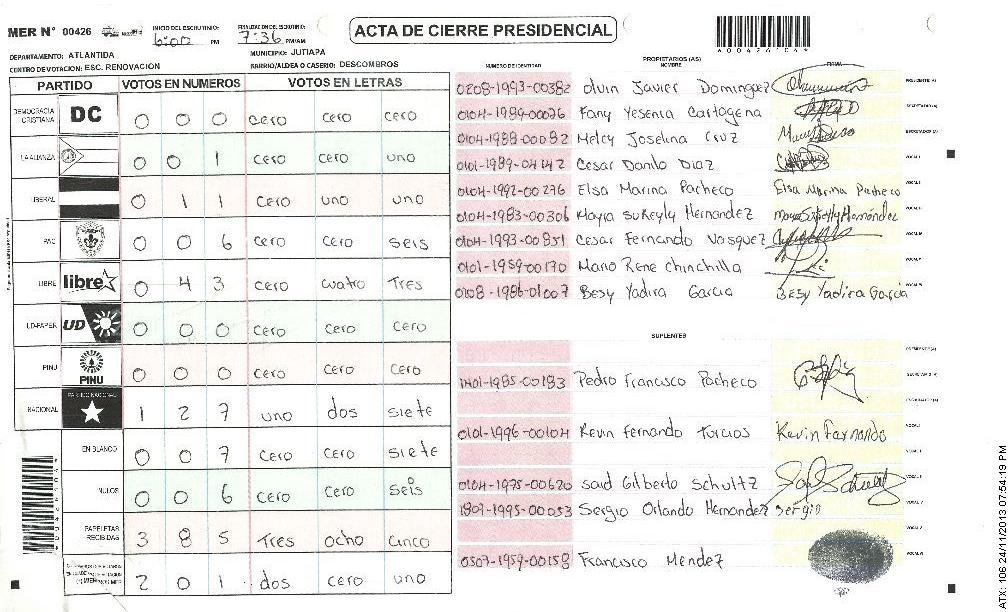 MER N° 00426 INICIO DEL ESCRUTINIO: 6:00 PM FINALIZACION DEL ESCRUTINIO: 7:36 PM/AM
ACTA DE CIERRE PRESIDENCIAL
DEPARTAMENTO: ATLANTIDA MUNICIPIO: JUTIAPA
CENTRO DE VOTACION: ESC. RENOVACION BARRIO/ALDEA O CASERIO: DESCOMBROS
PARTIDO VOTOS EN NUMEROS VOTOS EN LETRAS
DEMOCRACIA CRISTIANA DC 0 0 0 cero cero cero
LA ALIANZA 0 0 1 cero cero uno
LIBERAL 0 1 1 cero uno uno
PAC 0 0 6 cero cero seis
LIBRE libre 0 4 3 cero cuatro Tres
UD-FAPER UD 0 0 0 cero cero cero
PINU PINU 0 0 0 cero cero cero
NACIONAL PARTIDO NACIONAL 1 2 7 uno dos siete
EN BLANCO 0 0 7 cero cero siete
NULOS 0 0 6 cero cero seis
PAPELETAS RECIBIDAS 3 8 5 Tres ocho cinco
2 0 1 dos cero uno
PROPIETARIOS (AS)
NUMERO DE IDENTIDAD NOMBRE FIRMA
0208-1993-00382 olvin Javier Dominguez PRESIDENTE (A)
0104-1989-00076 Fany Yesenia Cartogena SECRETARIO (A)
0104-1988-00082 Melcy Joselina Cruz
0101-1989-04142 Cesar Danilo Diaz VOCAL I
0104-1992-00276 Elsa Marina Pacheco Elsa Marina Pacheco
0104-1983-00306 Mayra sukeyly Hernandez
0104-1993-00851 Cesar Fernando Vasquez
0101-1959-00170 Mario Rene chinchilla
0108-1986-01007 Besy Yadira Garcia Besy Yadira Garcia
SUPLENTES
PRESIDENTE (A)
1401-1985-00183 Pedro Francisco Pacheco SECRETARIO (A)
0101-1996-00104 Kevin Fernando Turcios Kevin Farnando
0104-1975-00620 said Gilberto Schultz
1809-1995-00053 Sergio Orlando Hernandez sergio
0507-1959-00158 Francisco Mendez
ATX: 106 24/11/2013 07:54:19 PM